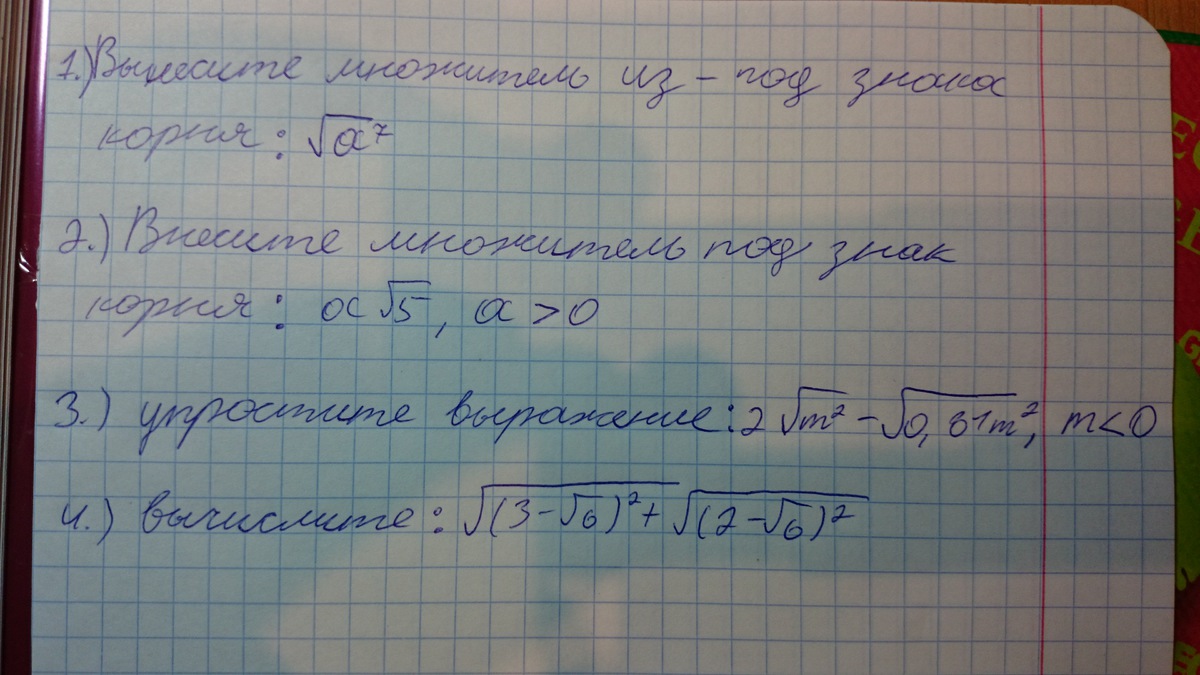 1.) Вынесите множитель из-под знака
корня: √a⁷
2.) Внесите множитель под знак
корня: a√5, a>0
3.) упростите выражение: 2√m² - √0,81m², m<0
4.) вычислите: √(3-√6)² + √(2-√6)²